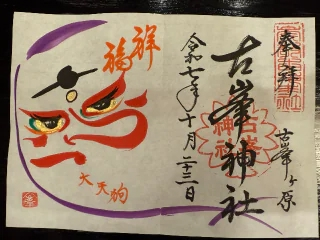 奉拝
古峯ヶ原
古峯神社
古峯神社
令和七年十月二十三日
祥福
大天狗